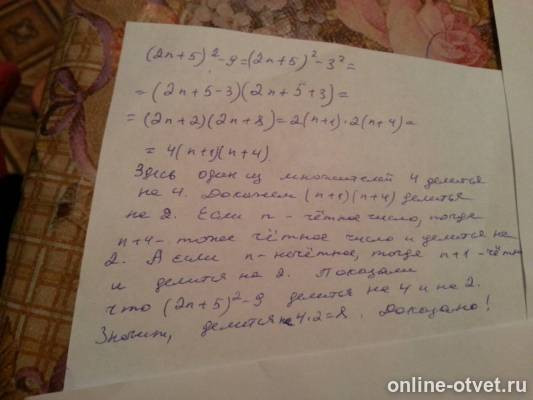 (2n+5)²-9=(2n+5)²-3²=
=(2n+5-3)(2n+5+3)=
=(2n+2)(2n+8)=2(n+1)·2(n+4)=
=4(n+1)(n+4)
Здесь один из множителей 4 делится
на 4. Докажем (n+1)(n+4) делится
на 2. Если n - чётное число, тогда
n+4 - тоже чётное число и делится на
2. А если n - нечётное, тогда n+1 - чётн
и делится на 2. Показали
что (2n+5)²-9 делится на 4 и на 2.
Значит, делится на 4·2=8. Доказано!
online-otvet.ru